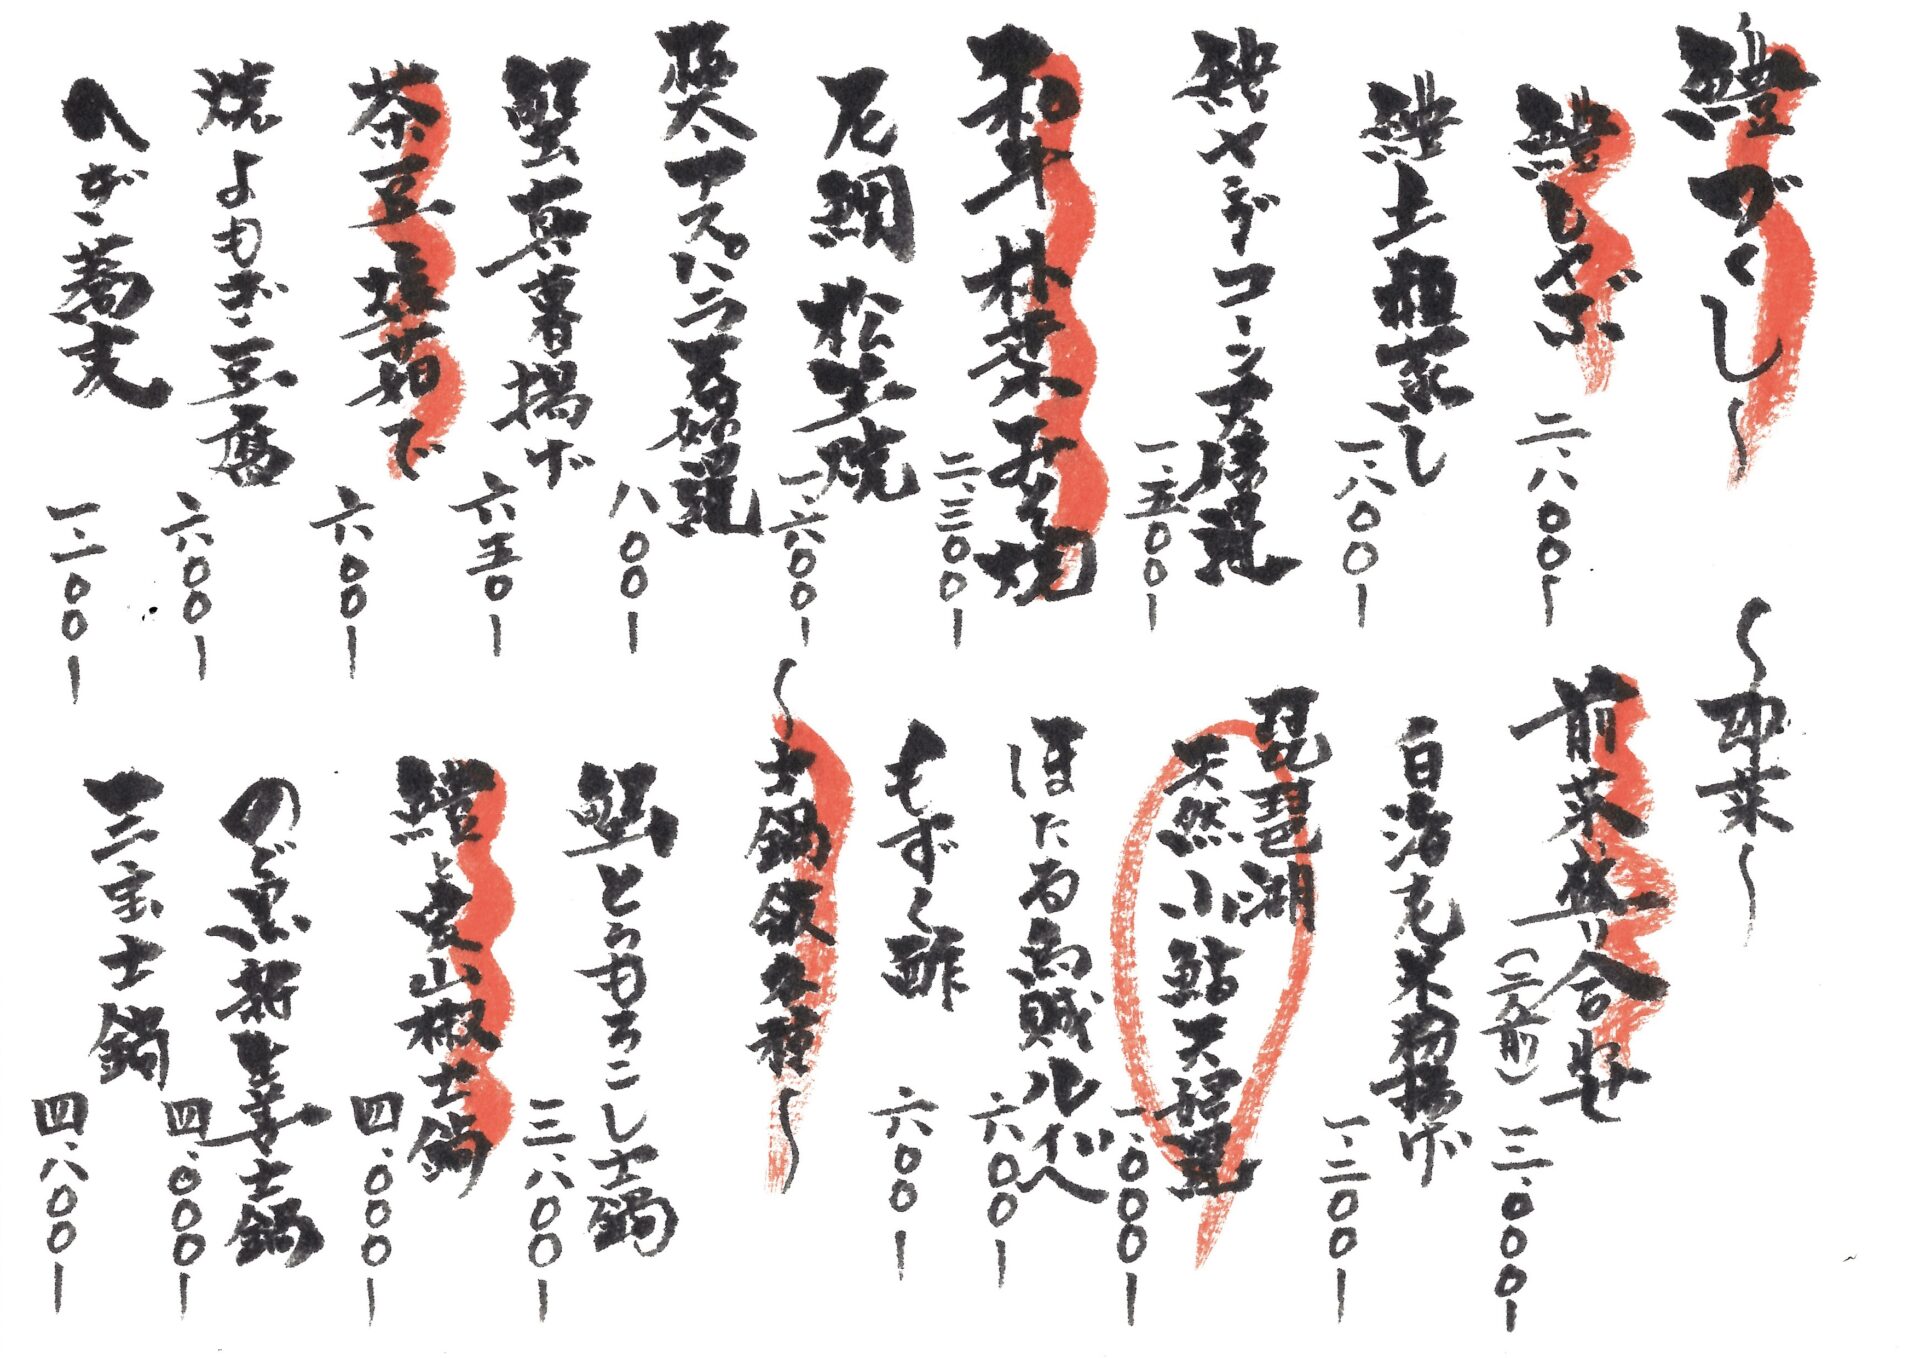 鱧づくし〜
鱧しゃぶ 二、八〇〇ー
鱧土瓶蒸し 一、八〇〇ー
鱧ヤングコーン天婦羅 一、五〇〇ー
和牛朴葉みそ焼 二、三〇〇ー
尼鯛松笠焼 一、六〇〇ー
極太アスパラ天婦羅 八〇〇ー
蟹真薯揚げ 六五〇ー
茶豆塩茹で 六〇〇ー
焼よもぎ豆腐 六〇〇ー
へぎ蕎麦 一、一〇〇ー
〜菜〜
前菜盛り合せ（二人前） 三、〇〇〇ー
白海老米粉揚げ 一、二〇〇ー
琵琶湖
天然小鮎天婦羅 一、〇〇〇ー
ほたる烏賊ルイベ 六〇〇ー
もずく酢 六〇〇ー
〜土鍋飯各種〜
とうもろこし土鍋 三、八〇〇ー
鱧と実山椒土鍋 四、〇〇〇ー
のど黒新生姜土鍋 四、〇〇〇ー
三宝土鍋 四、八〇〇ー